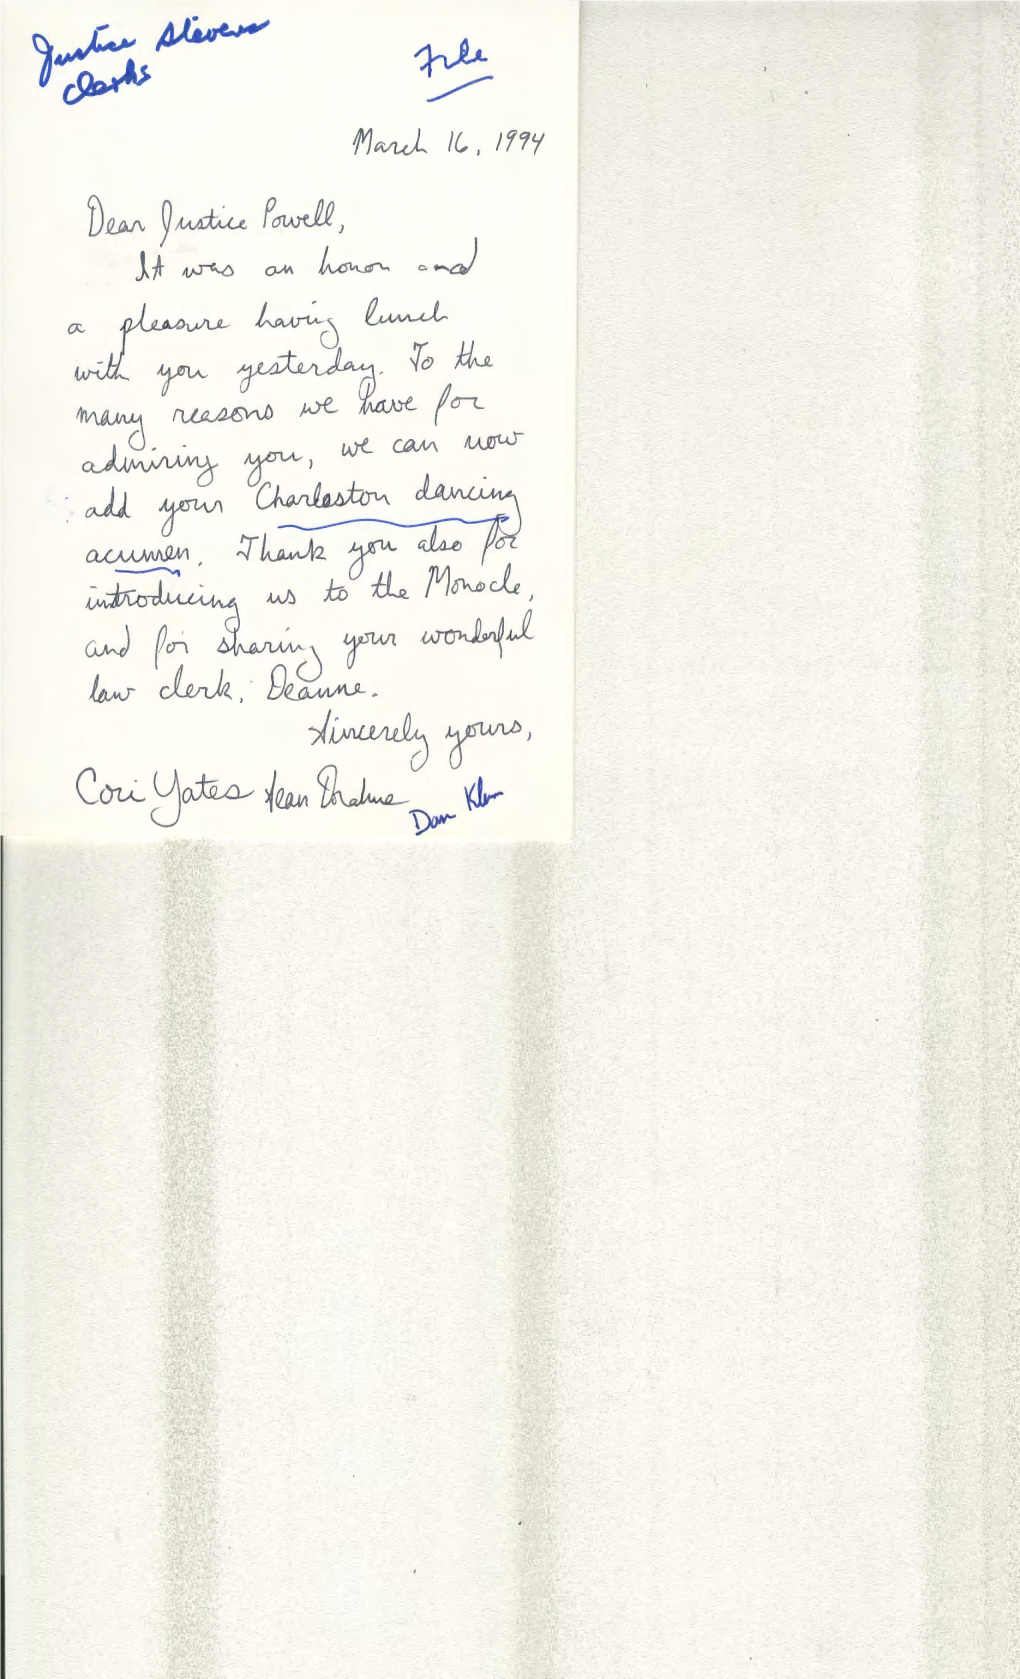 Justice Stevens
Clerks
File
March 16, 1994
Dear Justice Powell,
It was an honor and
a pleasure having lunch
with you yesterday. To the
many reasons we have for
admiring you, we can now
add your Charleston dancing
acumen. Thank you also for
introducing us to the Monocle,
and for sharing your wonderful
law clerk, Deanne.
Sincerely yours,
Cori Yates Sean
Dan